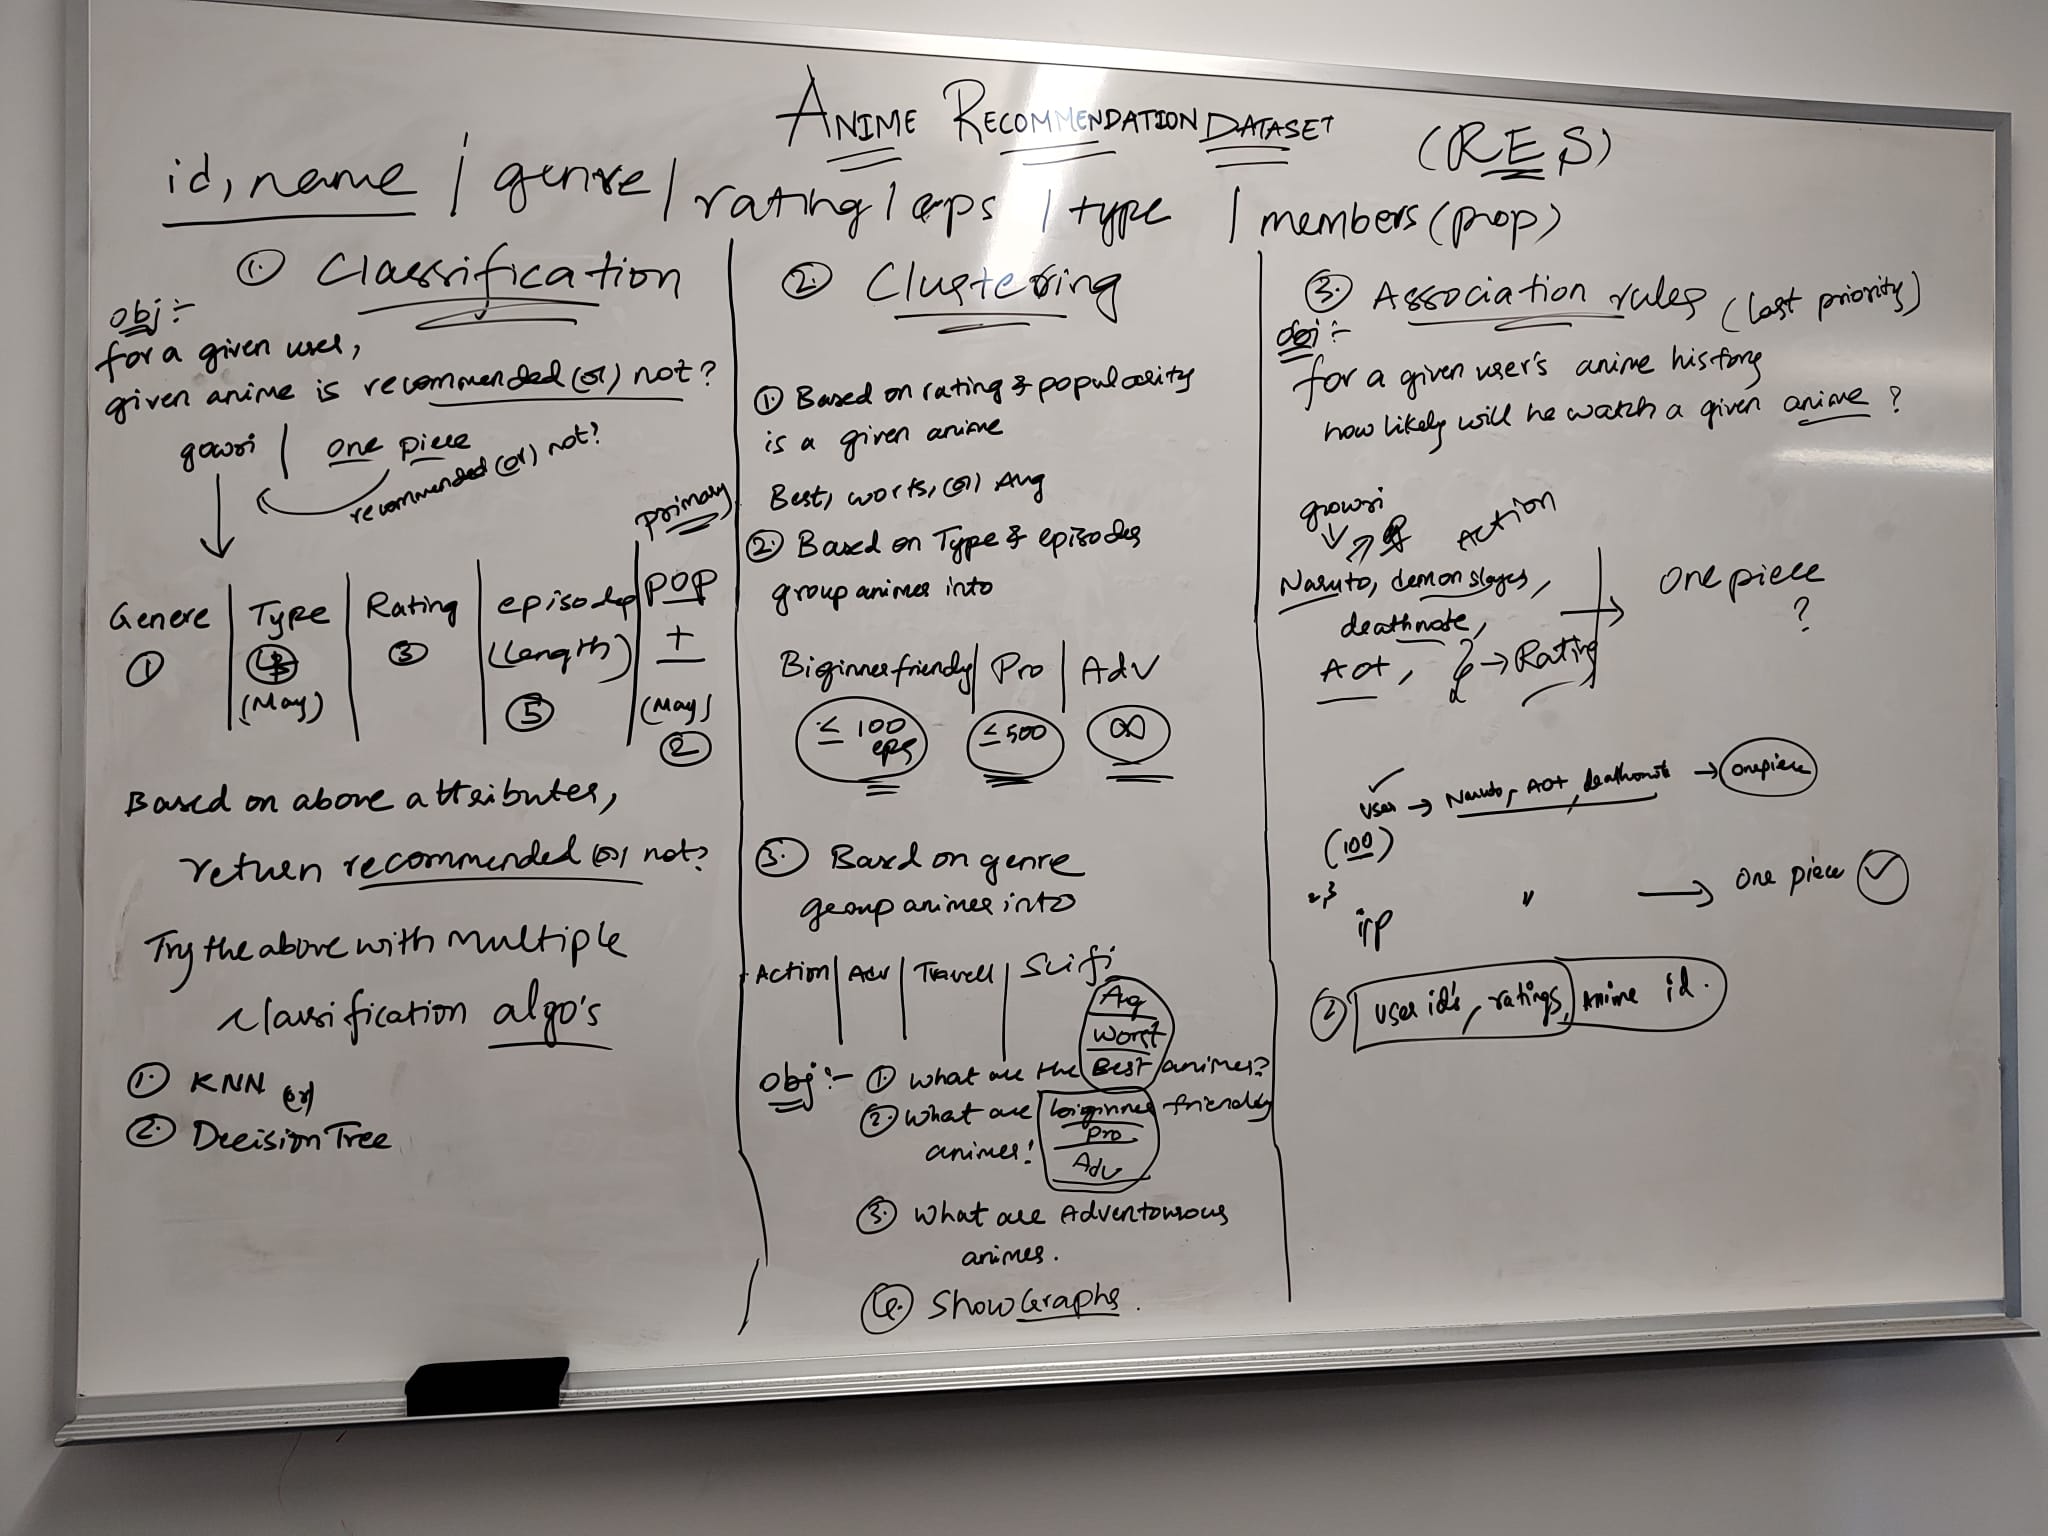 ANIME RECOMMENDATION DATASET
(RES)
id, name | genre | rating | eps | type | members (pop)
① Classification
obj :-
for a given user,
given anime is recommended (or) not?
gowri | one piece
recommended (or) not?
primary
Genere | Type | Rating | episodes | POP
① ③ (Length) +
(May) ⑤ (May)
②
Based on above attributes,
return recommended (or) not?
Try the above with multiple
classification algo's
① KNN (or)
② Decision Tree
② Clustering
① Based on rating & popularity
is a given anime
Best, works, (or) Avg
② Based on Type & episodes
group animes into
Biginner friendly | Pro | Adv
≤ 100 eps ≤ 500 ∞
③ Based on genre
group animes into
Action | Adv | Travell | Scifi
Ag
Worst
obj :- ① What are the Best animes?
② What are biginner friendly
animes! Pro
Adv
③ What are Adventourous
animes.
④ Show Graphs.
③ Association rules (last priority)
obj :-
for a given user's anime history
how likely will he watch a given anime?
gowri
Action
Naruto, demon slayer, → One piece
deathnote, ?
Aot, → Rating
user → Naruto, Aot, deathnote → onepiece
(100)
2,3
" → One piece ✓
② user id's, ratings, Anime id.